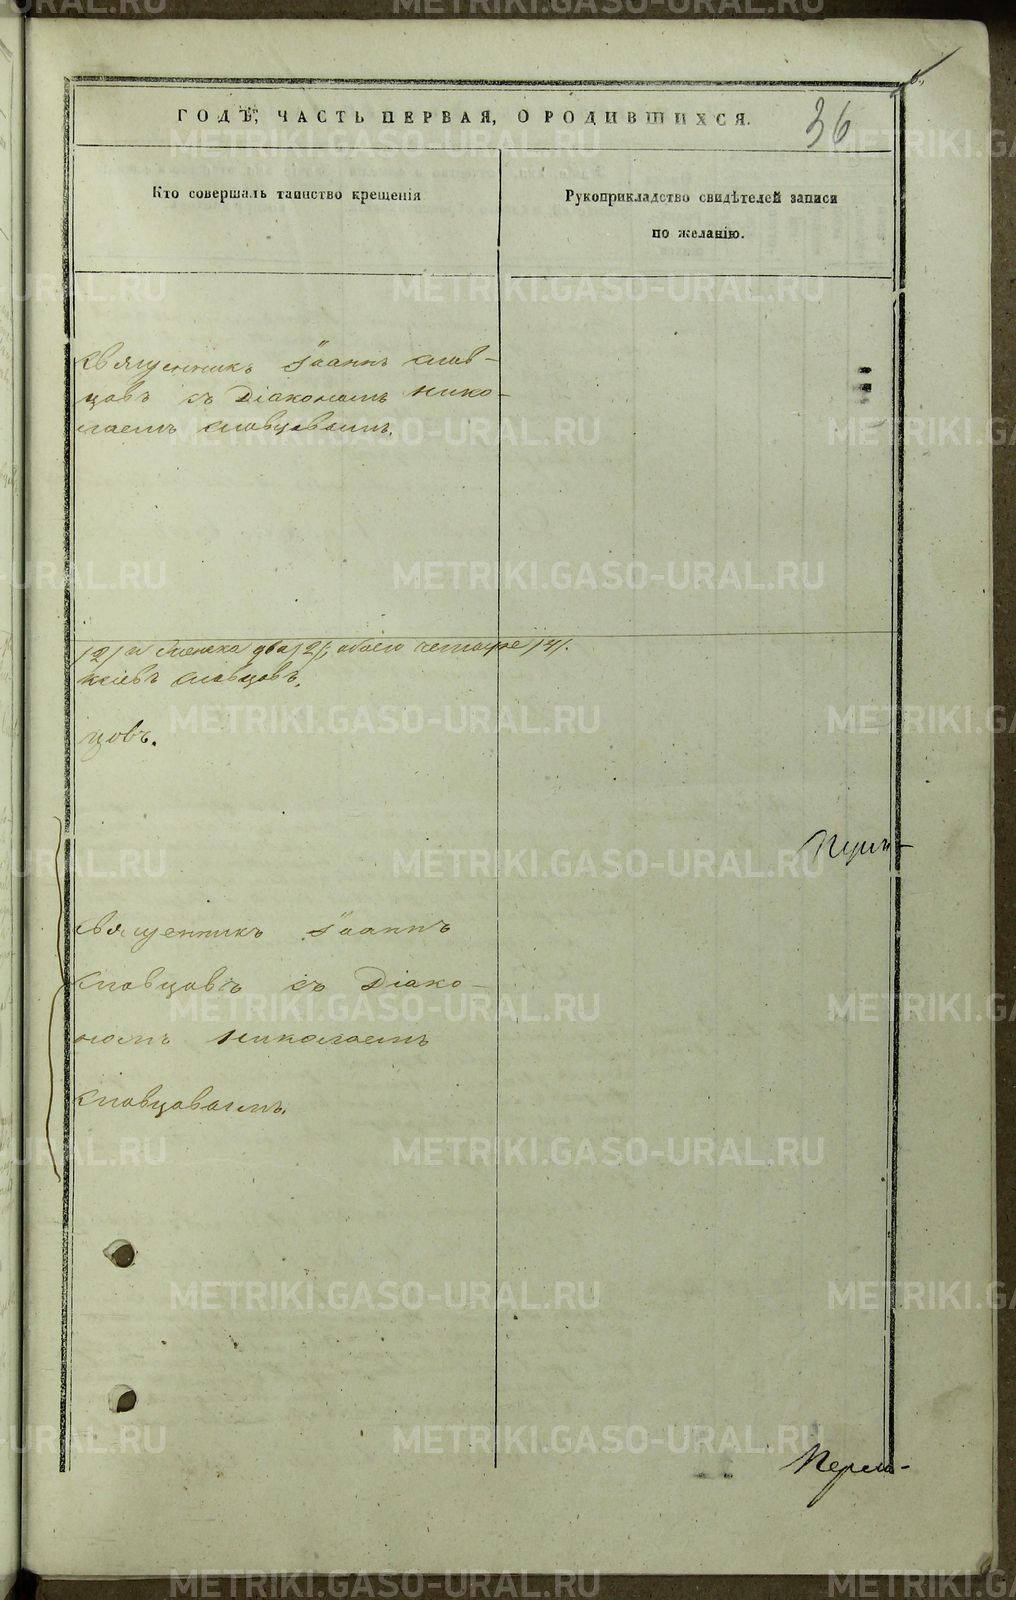 ГОДЪ, ЧАСТЬ ПЕРВАЯ, О РОДИВШИХСЯ.
36
Кто совершалъ таинство крещенія
Рукоприкладство свидѣтелей записи
по желанію.
Священникъ Іоаннъ Слов-
цовъ съ Діакономъ Нико-
лаемъ Словцовымъ.
/2/ и женска два /2/, обоего четыре /4/.
Словцовъ.
цовъ.
Священникъ Іоаннъ
Словцовъ съ Діако-
номъ Николаемъ
Словцовымъ.
METRIKI.GASO-URAL.RU